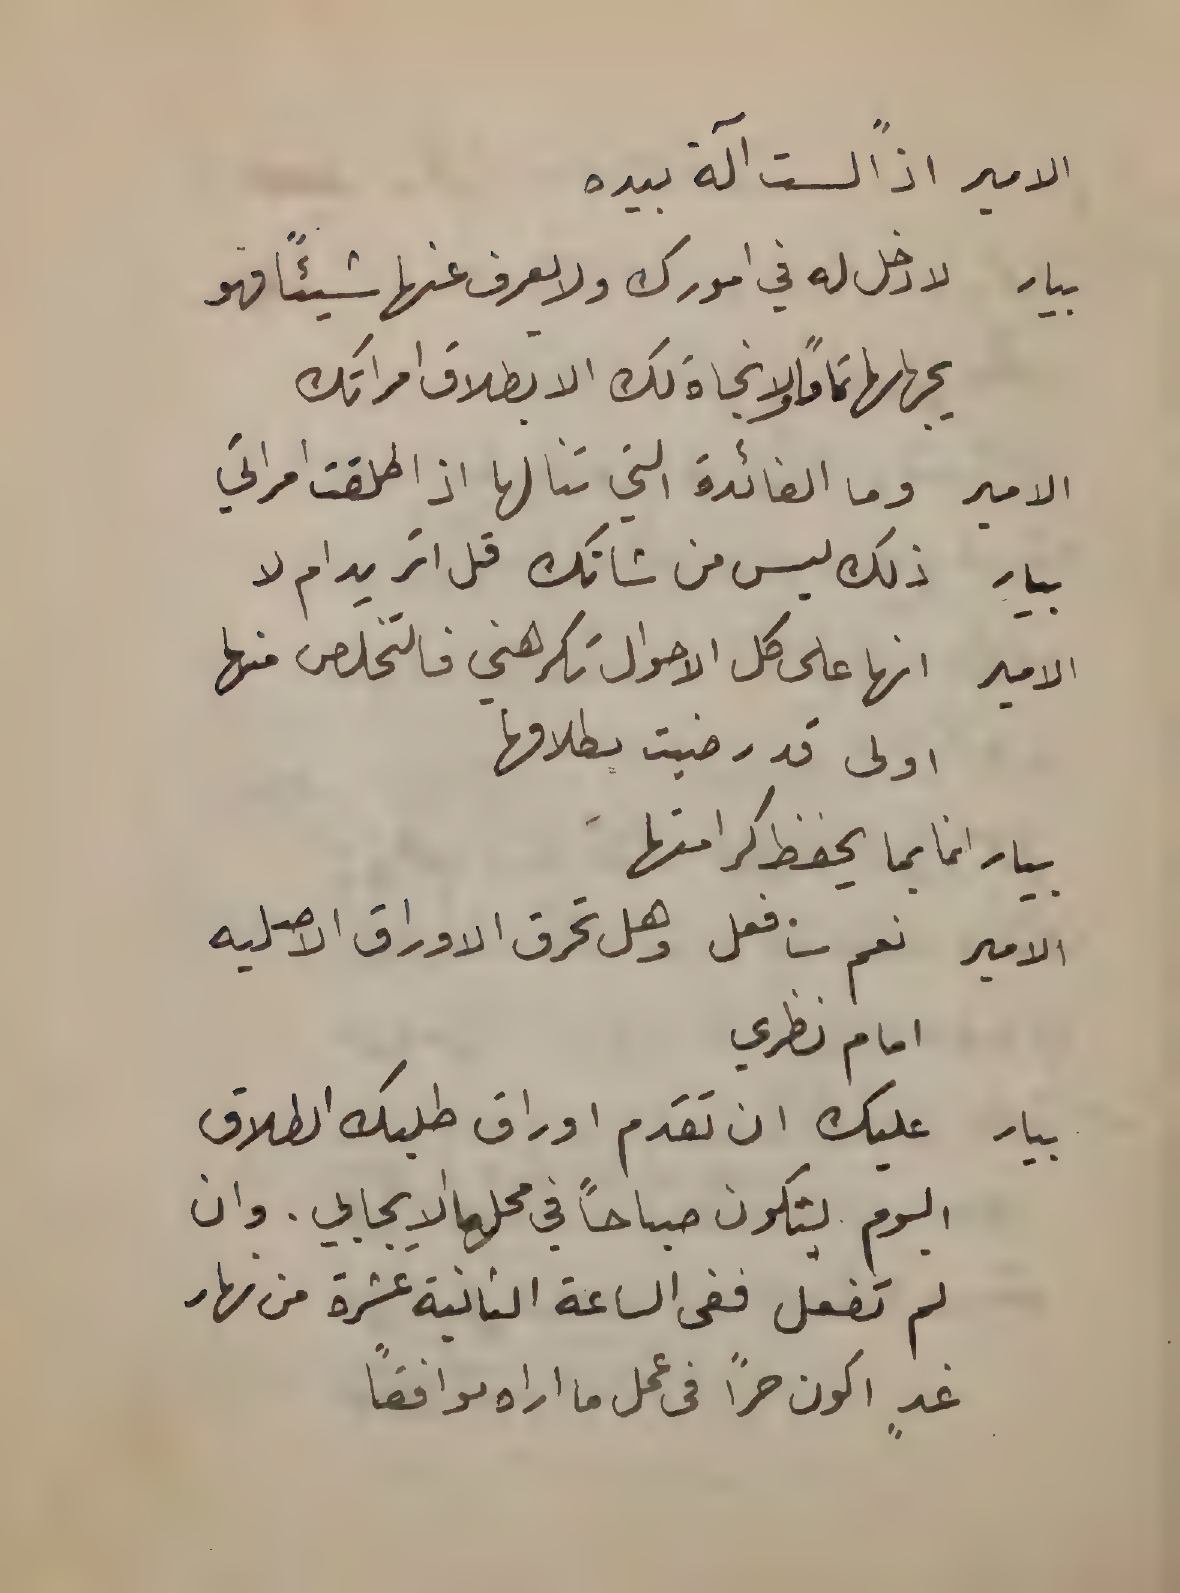 الامير اذاً لست آلة بيده
بيار لا دخل له في امورك ولا يعرف عنها شيئاً فهو
يجهلها تماماً ولا نجاة لك الا بطلاق امراتك
الامير وما الفائدة التي تنالها اذا طلقت امراتي
بيار ذلك ليس من شانك قل اتريد ام لا
الامير انها على كل الاحوال تكرهني فالتخلص منها
اولى قد رضيت بطلاقها
بيار انما بما يحفظ كرامتها
الامير نعم سافعل وهل تحرق الاوراق الاصليه
امام نظري
بيار عليك ان تقدم اوراق طلبك الطلاق
اليوم لتكون صباحاً في محلها الايجابي . وان
لم تفعل ففى الساعة الثانية عشرة من نهار
غدٍ اكون حراً فى عمل ما اراه موافقاً